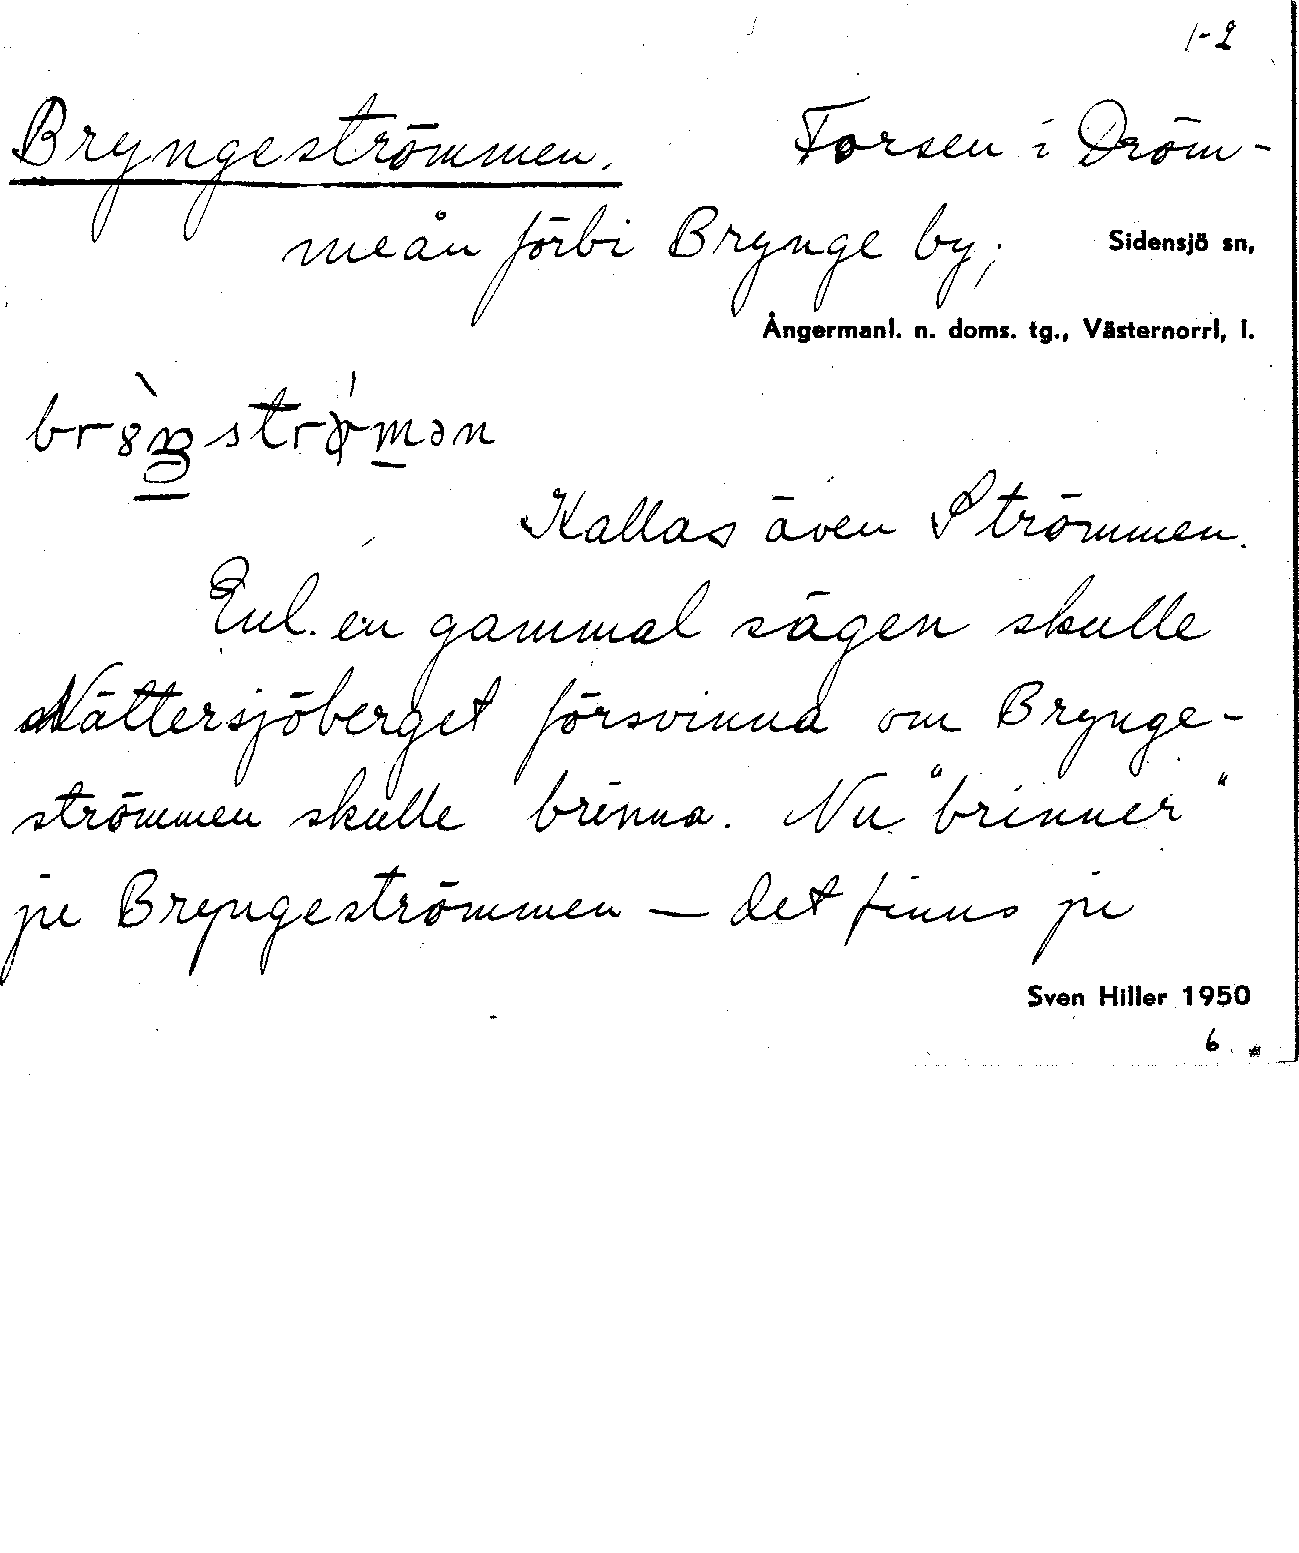 1-2
Bryngeströmmen. Forsen i Dröm-
meån förbi Brynge by; Sidensjö sn,
Ångermanl. n. doms. tg., Västernorrl, l.
Kallas även Strömmen.
Enl. en gammal sägen skulle
Nättersjöberget försvinna om Brynge-
strömmen skulle brinna. Nu "brinner"
ju Bryngeströmmen — det finns ju
Sven Hiller 1950
6